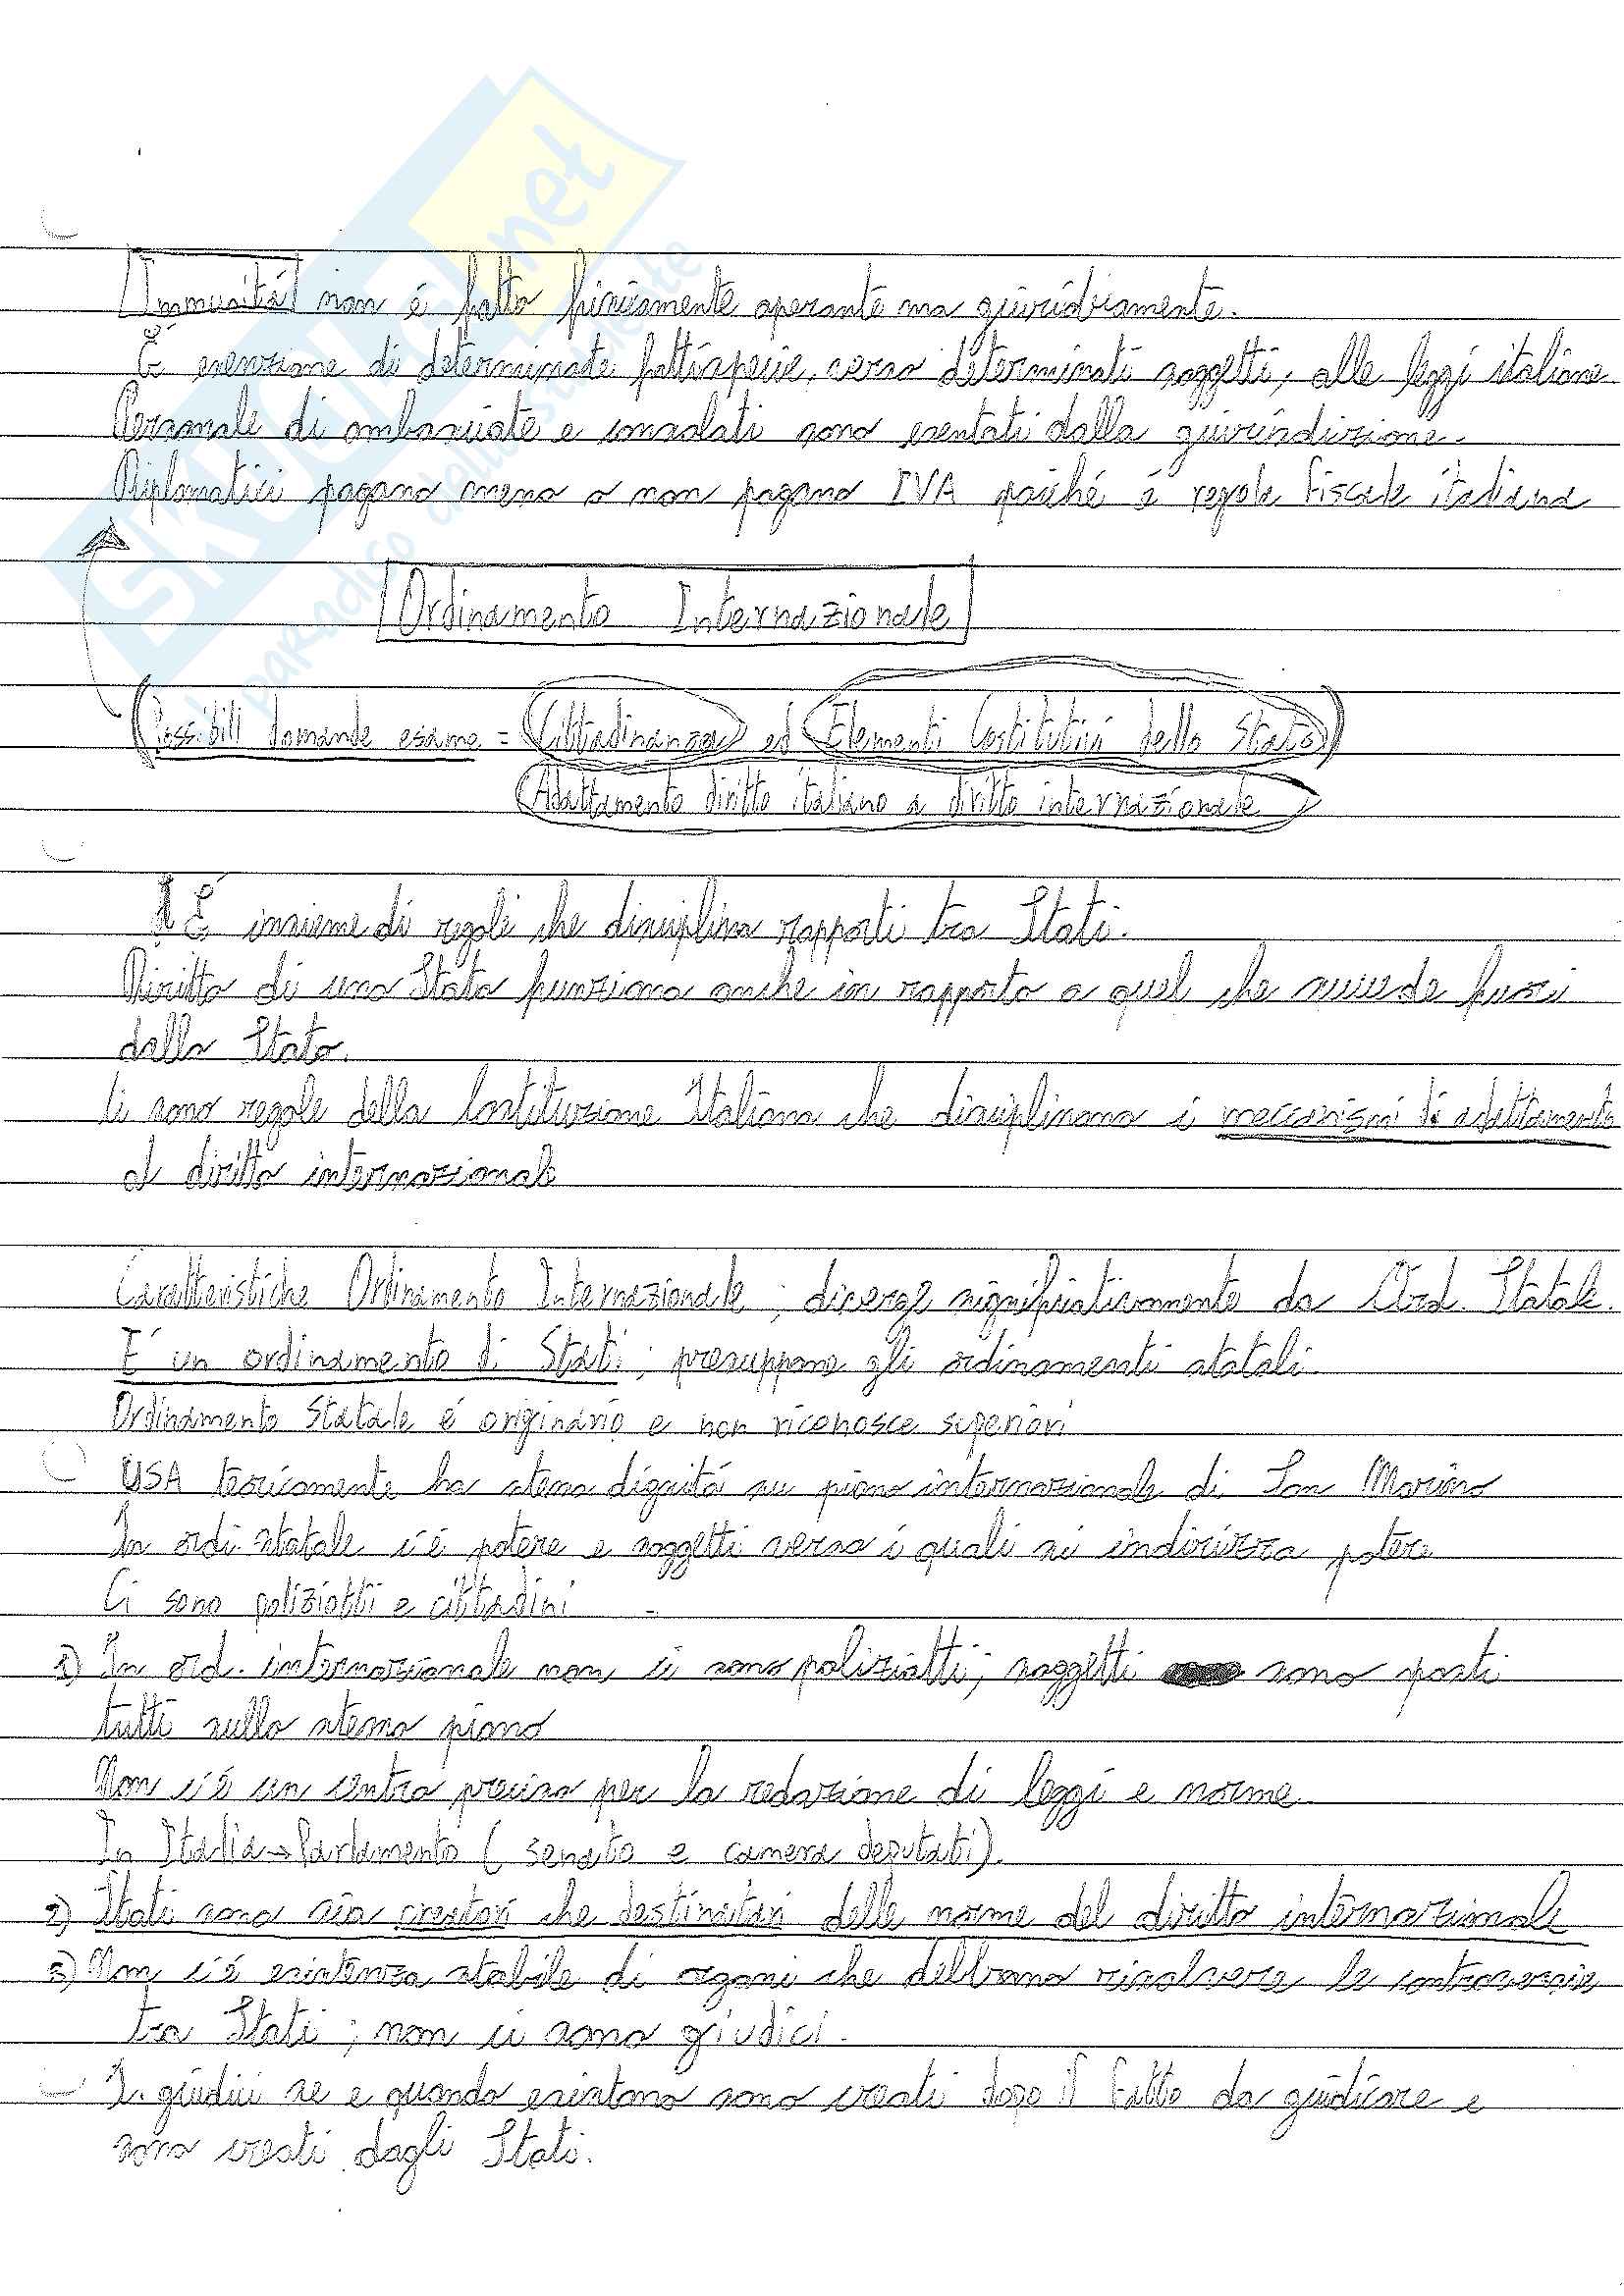 SKUOLA.net
il paradiso dello studente
Immunitá non é fatto fisicamente operante ma giuridicamente.
É esenzione di determinate fattispecie, verso determinati soggetti, alle leggi italiane
Personale di ambasciate e consolati sono esentati dalla giurisdizione.
Diplomatici pagano meno o non pagano IVA poiché é regola fiscale italiana
Ordinamento Internazionale
Possibili domande esame = Cittadinanza ed Elementi Costitutivi dello Stato
Adattamento diritto italiano a diritto internazionale
É insieme di regole che disciplina rapporti tra Stati.
Diritto di uno Stato funziona anche in rapporto a quel che succede fuori
dallo Stato.
Ci sono regole della Costituzione Italiana che disciplinano i meccanismi di adattamento
al diritto internazionale
Caratteristiche Ordinamento Internazionale ; diverge significativamente da Ord. Statale.
É un ordinamento di Stati ; presuppone gli ordinamenti statali.
Ordinamento Statale é originario e non riconosce superiori
USA teoricamente ha stessa dignitá su piano internazionale di San Marino
In ordi. statale c'é potere e soggetti verso i quali si indirizza potere
Ci sono poliziotti e cittadini
1) In ord. internazionale non ci sono poliziotti; soggetti sono posti
tutti sullo stesso piano
Non c'é un centro preciso per la redazione di leggi e norme
In Italia → Parlamento ( senato e camera deputati).
2) Stati sono sia creatori che destinatari delle norme del diritto internazionale
3) Non c'é esistenza stabile di organi che debbano risolvere le controversie
tra Stati ; non ci sono giudici.
I giudici se e quando esistono sono creati dopo il fatto da giudicare e
sono creati dagli Stati.